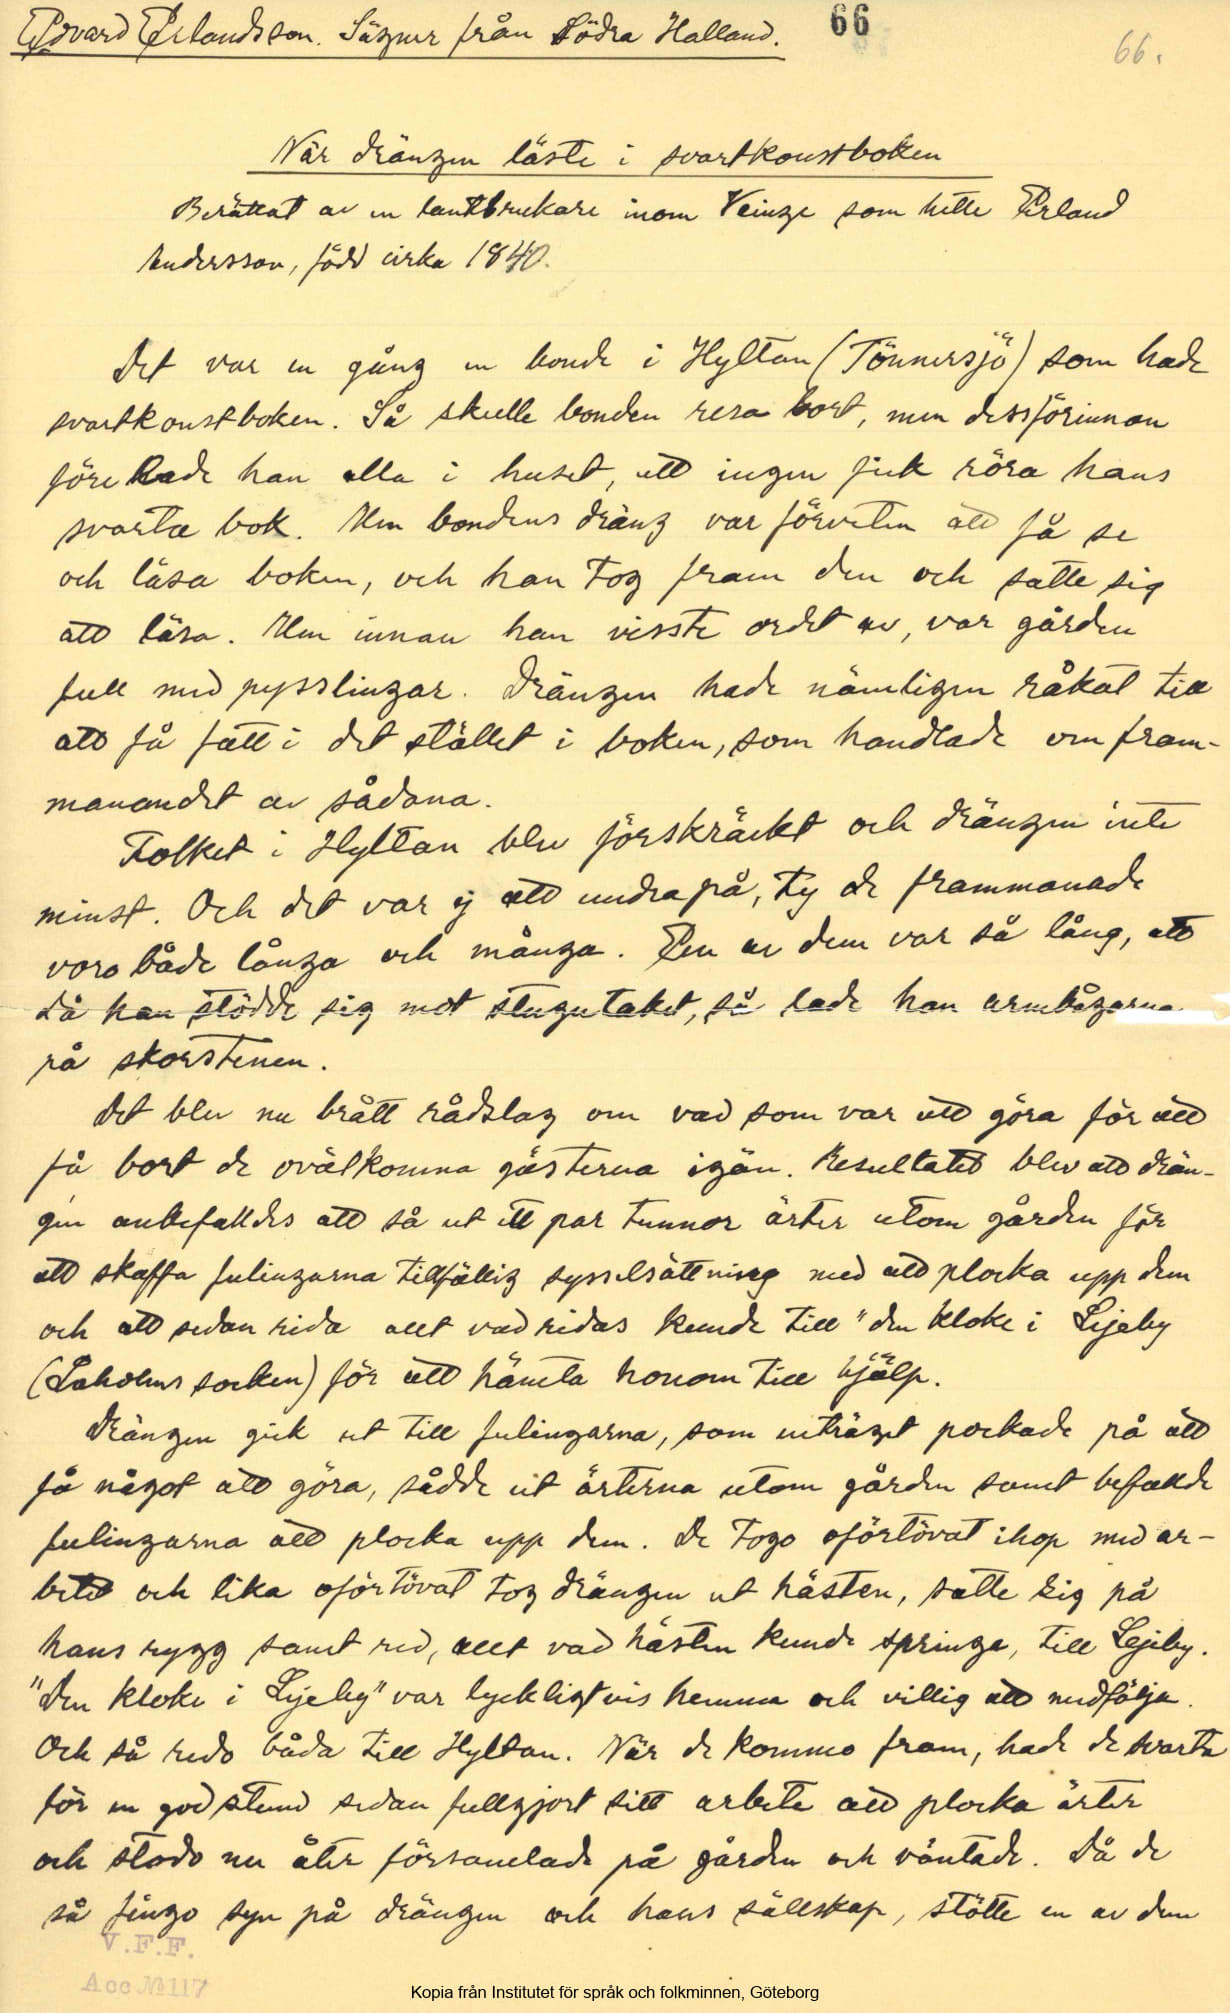 Edvard Erlandsson. Sägner från Södra Halland. 66
66.
När drängen läste i svartkonstboken
Berättat av en lantbrukare inom Veinge som hette Erland
Andersson, född cirka 1840.
Det var en gång en bonde i Hyltan (Tönnersjö) som hade
svartkonstboken. Så skulle bonden resa bort, men dessförinnan
förehade han alla i huset, att ingen fick röra hans
svarta bok. Men bondens dräng var förveten att få se
och läsa boken, och han tog fram den och satte sig
att läsa. Men innan han visste ordet av, var gården
full med pysslingar. Drängen hade nämligen råkat till
att få fatt i det stället i boken, som handlade om fram-
manandet av sådana.
Folket i Hyltan blev förskräckt och drängen inte
minst. Och det var ej att undra på, ty de frammanade
voro både långa och många. En av dem var så lång, att
då han stödde sig mot stugutaket, så lade han armbågarna
på skorstenen.
Det blev nu brått rådslag om vad som var att göra för att
få bort de ovälkomna gästerna igän. Resultatet blev att drän-
gen anbefalldes att så ut ett par tunnor ärter utom gården för
att skaffa fulingarna tillfällig sysselsättning med att plocka upp dem
och att sedan rida allt vad ridas kunde till "den kloke i Ljeby
(Laholms socken) för att hämta honom till hjälp.
Drängen gick ut till fulingarna, som enträget pockade på att
få något att göra, sådde ut ärterna utom gården samt befallde
fulingarna att plocka upp dem. De togo oförtövat ihop med ar-
betet och lika oförtövat tog drängen ut hästen, satte sig på
hans rygg samt red, allt vad hästen kunde springa, till Ljeby.
"Den kloke i Ljeby" var lyckligtvis hemma och villig att medfölja.
Och så redo båda till Hyltan. När de kommo fram, hade de svarta
för en god stund sedan fullgjort sitt arbete att plocka ärter
och stodo nu åter församlade på gården och väntade. Då de
så fingo syn på drängen och hans sällskap, stötte en av dem
V.F.F.
Acc № 117
Kopia från Institutet för språk och folkminnen, Göteborg